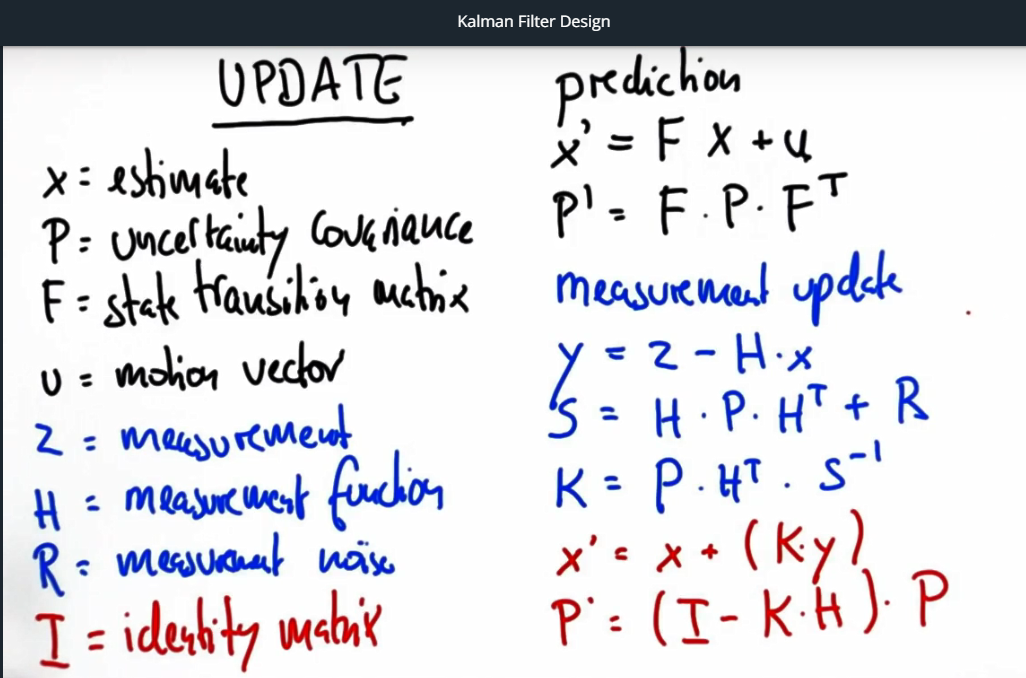 Kalman Filter Design
UPDATE
x = estimate
P = uncertainty covariance
F = state transition matrix
u = motion vector
z = measurement
H = measurement function
R = measurement noise
I = identity matrix
prediction
x' = F x + u
P' = F · P · Fᵀ
measurement update
y = z - H · x
S = H · P · Hᵀ + R
K = P · Hᵀ · S⁻¹
x' = x + (K·y)
P' = (I - K·H) · P